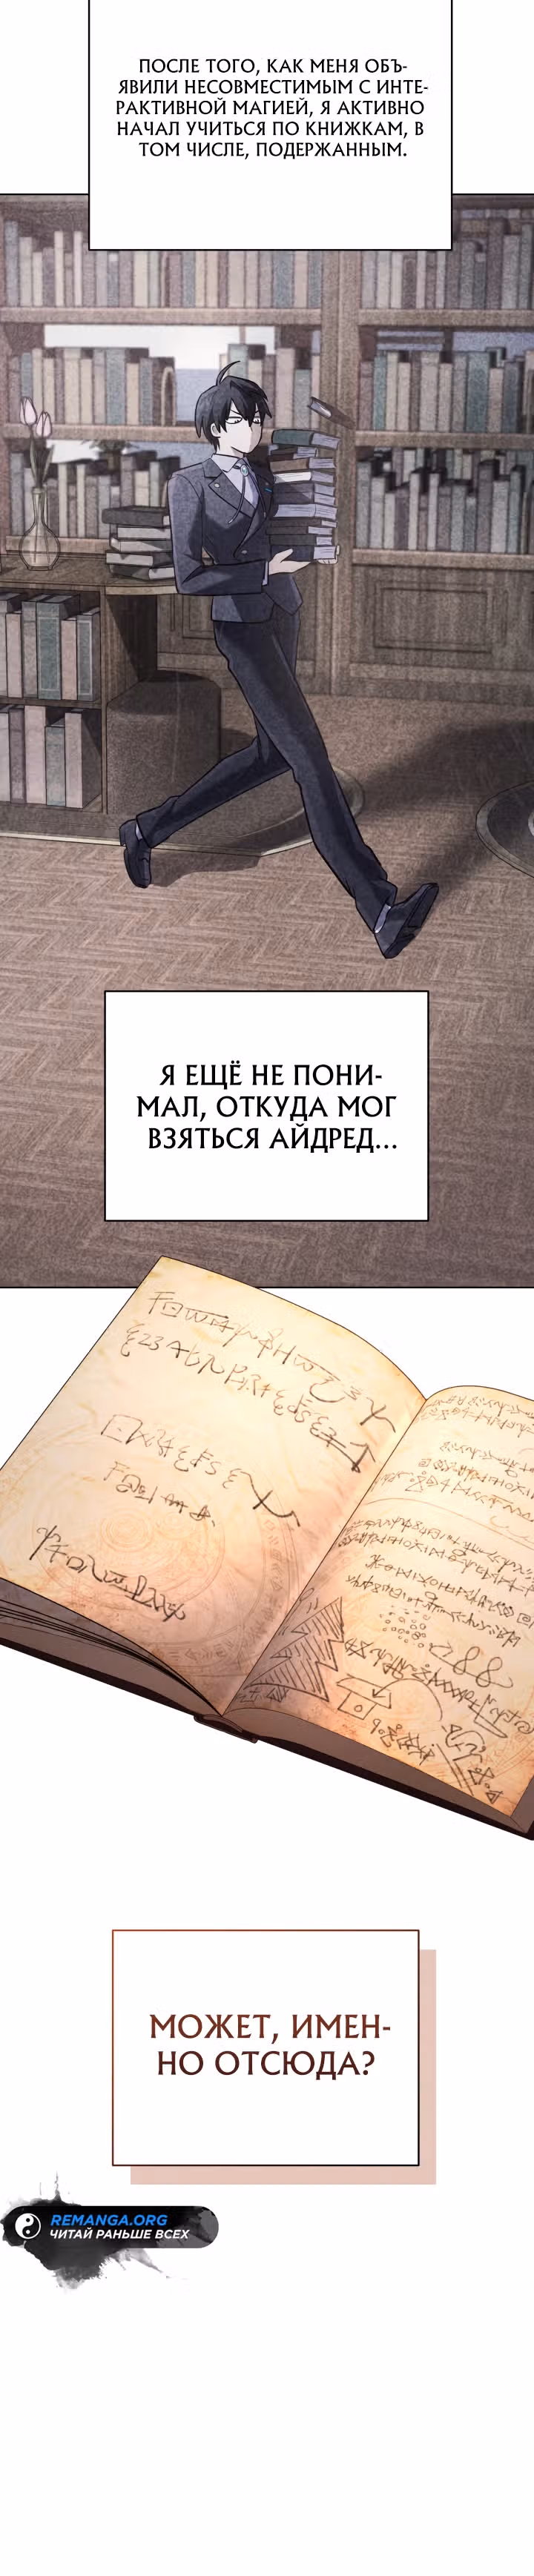 ПОСЛЕ ТОГО, КАК МЕНЯ ОБЪ-
ЯВИЛИ НЕСОВМЕСТИМЫМ С ИНТЕ-
РАКТИВНОЙ МАГИЕЙ, Я АКТИВНО
НАЧАЛ УЧИТЬСЯ ПО КНИЖКАМ, В
ТОМ ЧИСЛЕ, ПОДЕРЖАННЫМ.
Я ЕЩЁ НЕ ПОНИ-
МАЛ, ОТКУДА МОГ
ВЗЯТЬСЯ АЙДРЕД...
МОЖЕТ, ИМЕН-
НО ОТСЮДА?
REMANGA.ORG
ЧИТАЙ РАНЬШЕ ВСЕХ